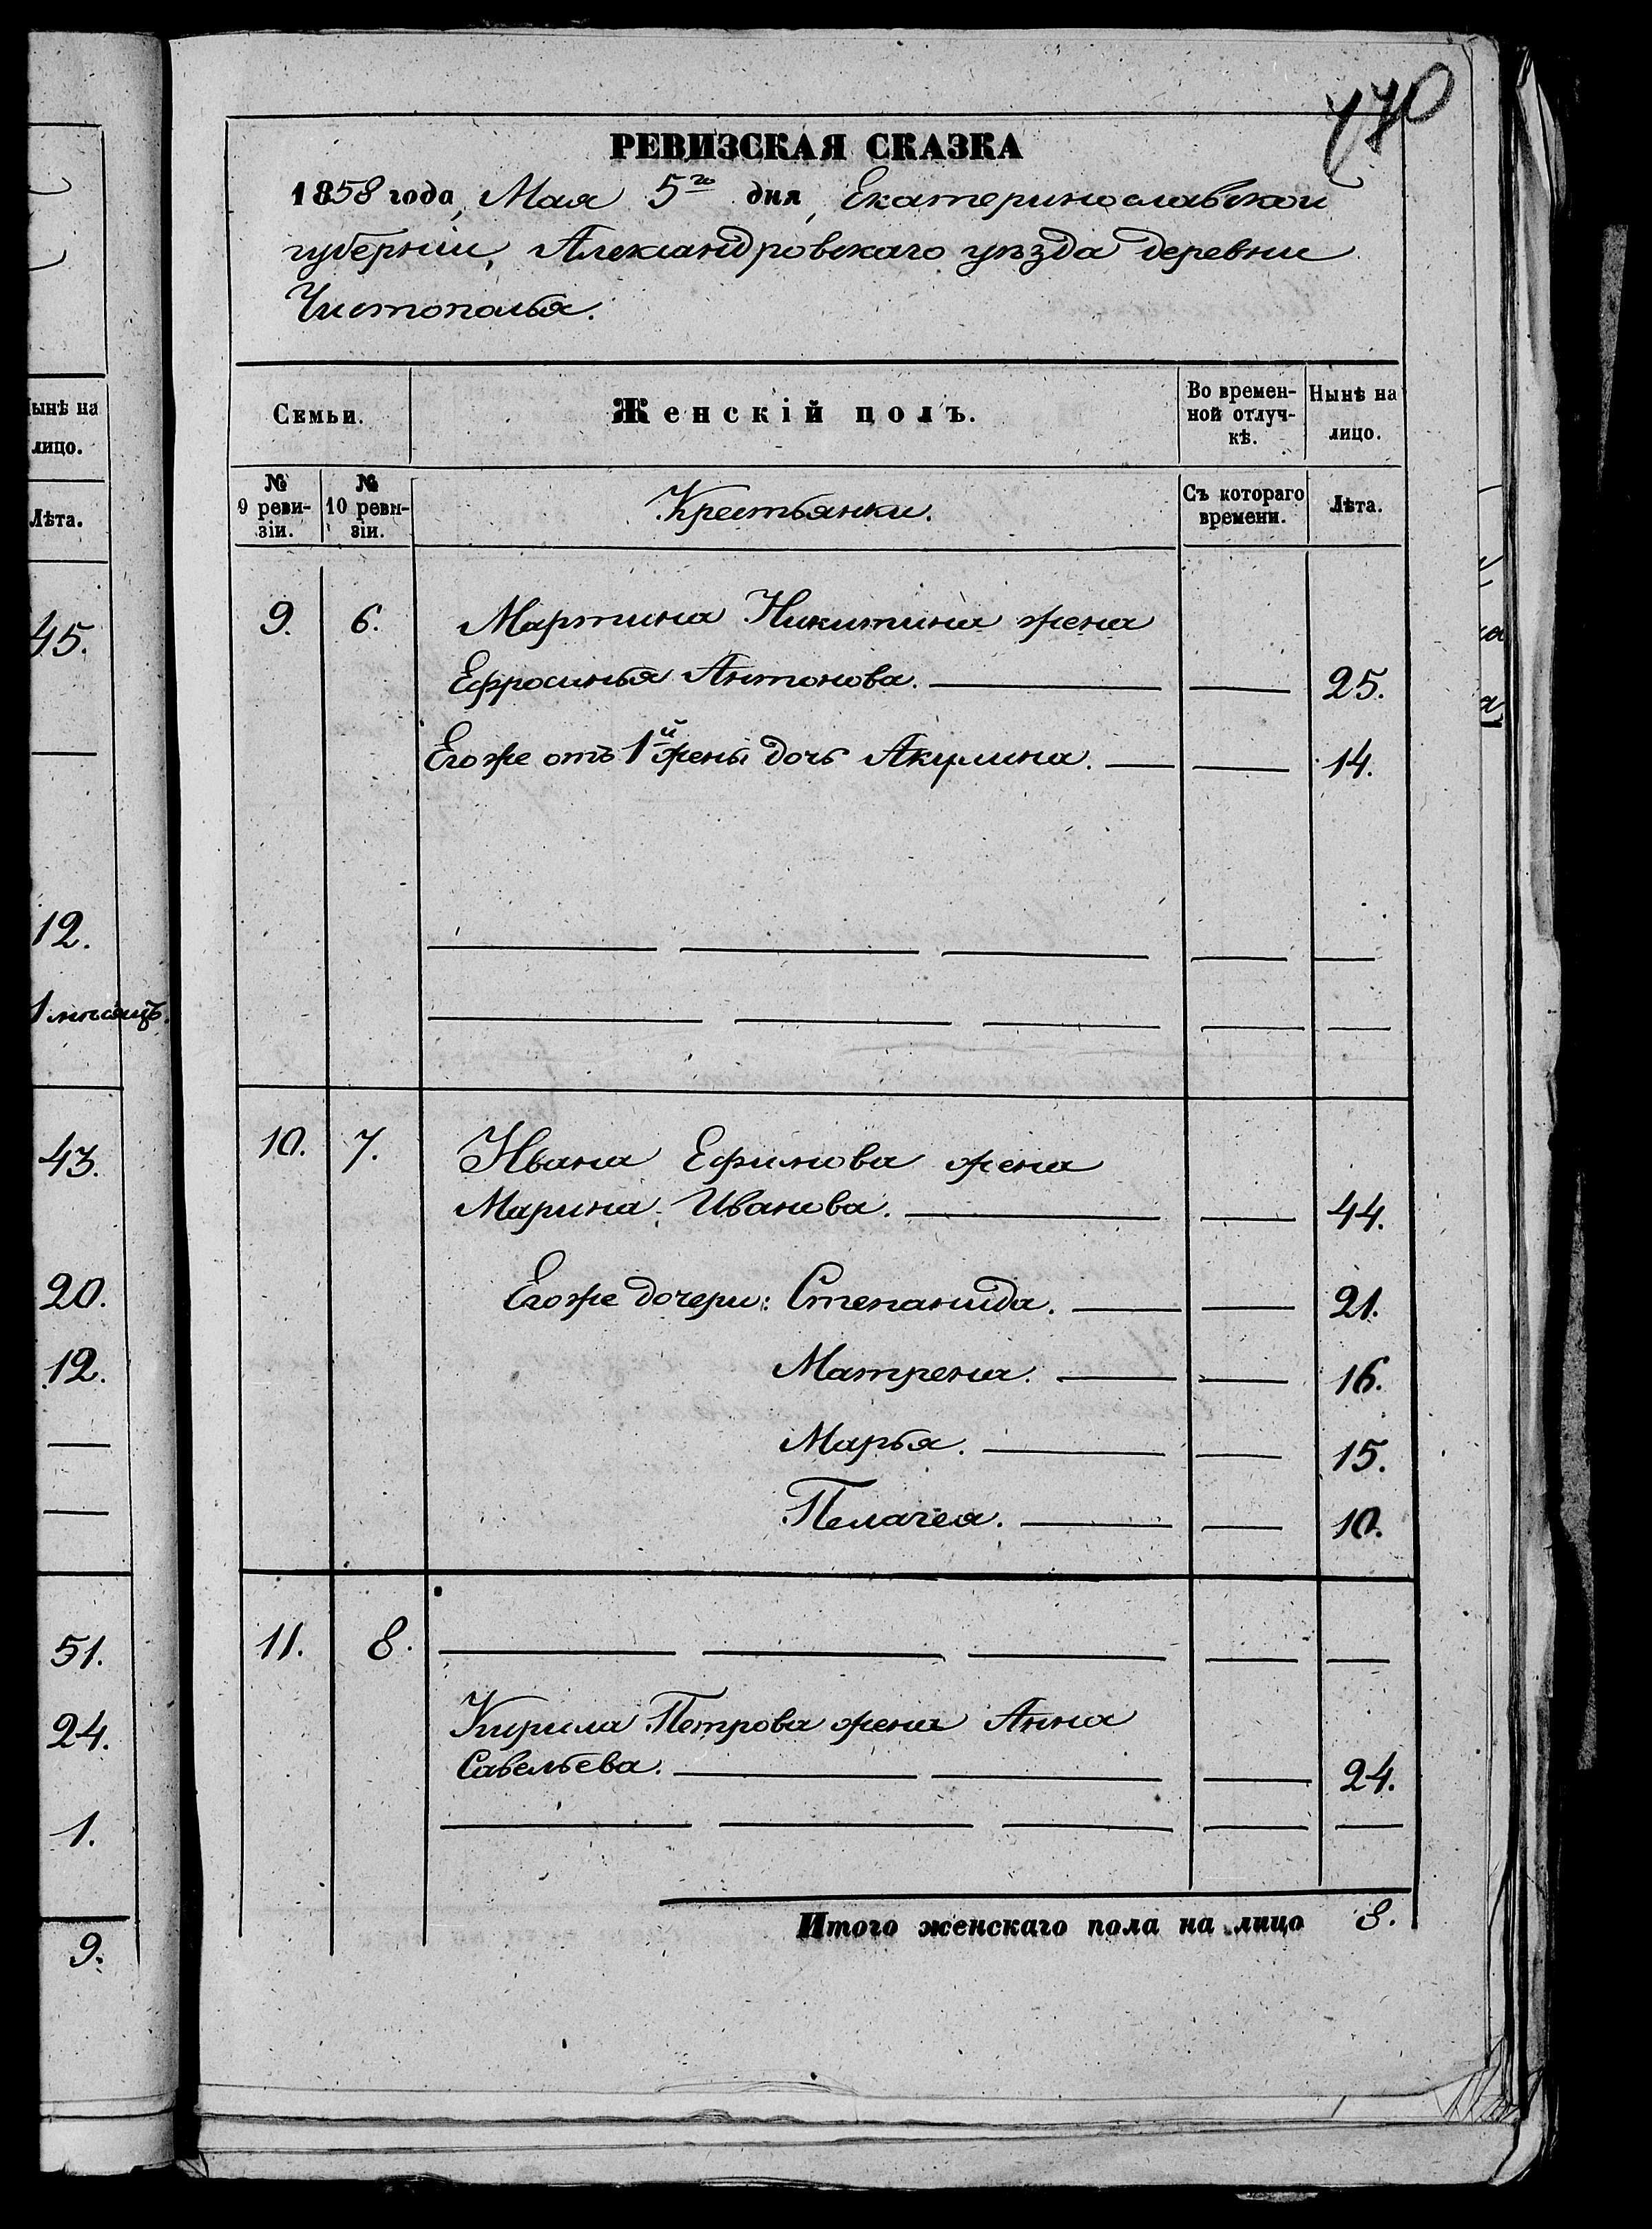 ынѣ на
лицо.
Лѣта.
45.
12.
1 мѣсяцъ.
43.
20.
12.
51.
24.
1.
9.
РЕВИЗСКАЯ СКАЗКА
1858 года, Мая 5го дня, Екатеринославской
губерніи, Александровскаго уѣзда деревни
Чистополья.
Семьи.
Женскій полъ.
Во времен-
ной отлуч-
кѣ.
Нынѣ на
лицо.
№
9 реви-
зіи.
№
10 реви-
зіи.
Крестьянки.
Съ котораго
времени.
Лѣта.
9. 6. Мартина Никитина жена
Ефросинья Антонова. 25.
Его же отъ 1й жены дочь Акулина. 14.
10. 7. Ивана Ефимова жена
Марина Иванова. 44.
Его же дочери: Степанида. 21.
Матрена. 16.
Марья. 15.
Пелагея. 10.
11. 8.
Кирила Петрова жена Анна
Савельева. 24.
Итого женскаго пола на лицо 8.